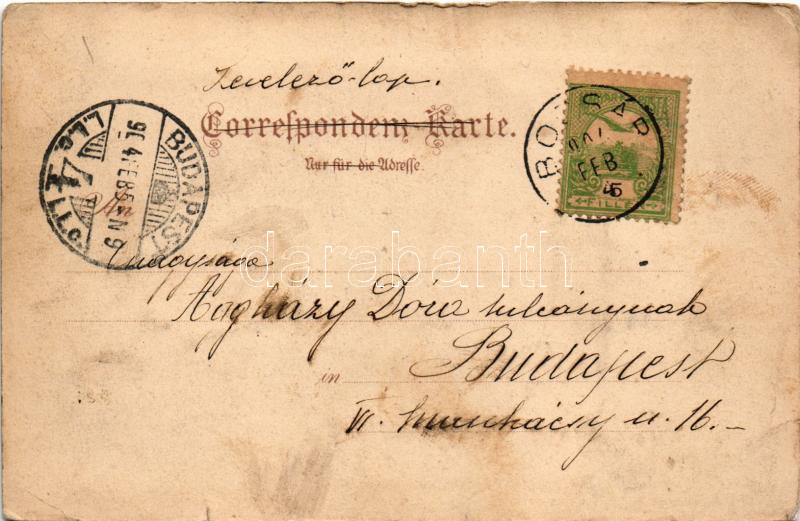 Levelező-lap.
Correspondenz-Karte.
Nur für die Adresse.
BUDAPEST
904 FEB 5 N 9
BORSÁP
904
FEB
5
FILLÉR
An
Nagysága
Aggházy Dóra urleánynak
in Budapest
VI. Munkácsy u. 16.–
darabanth